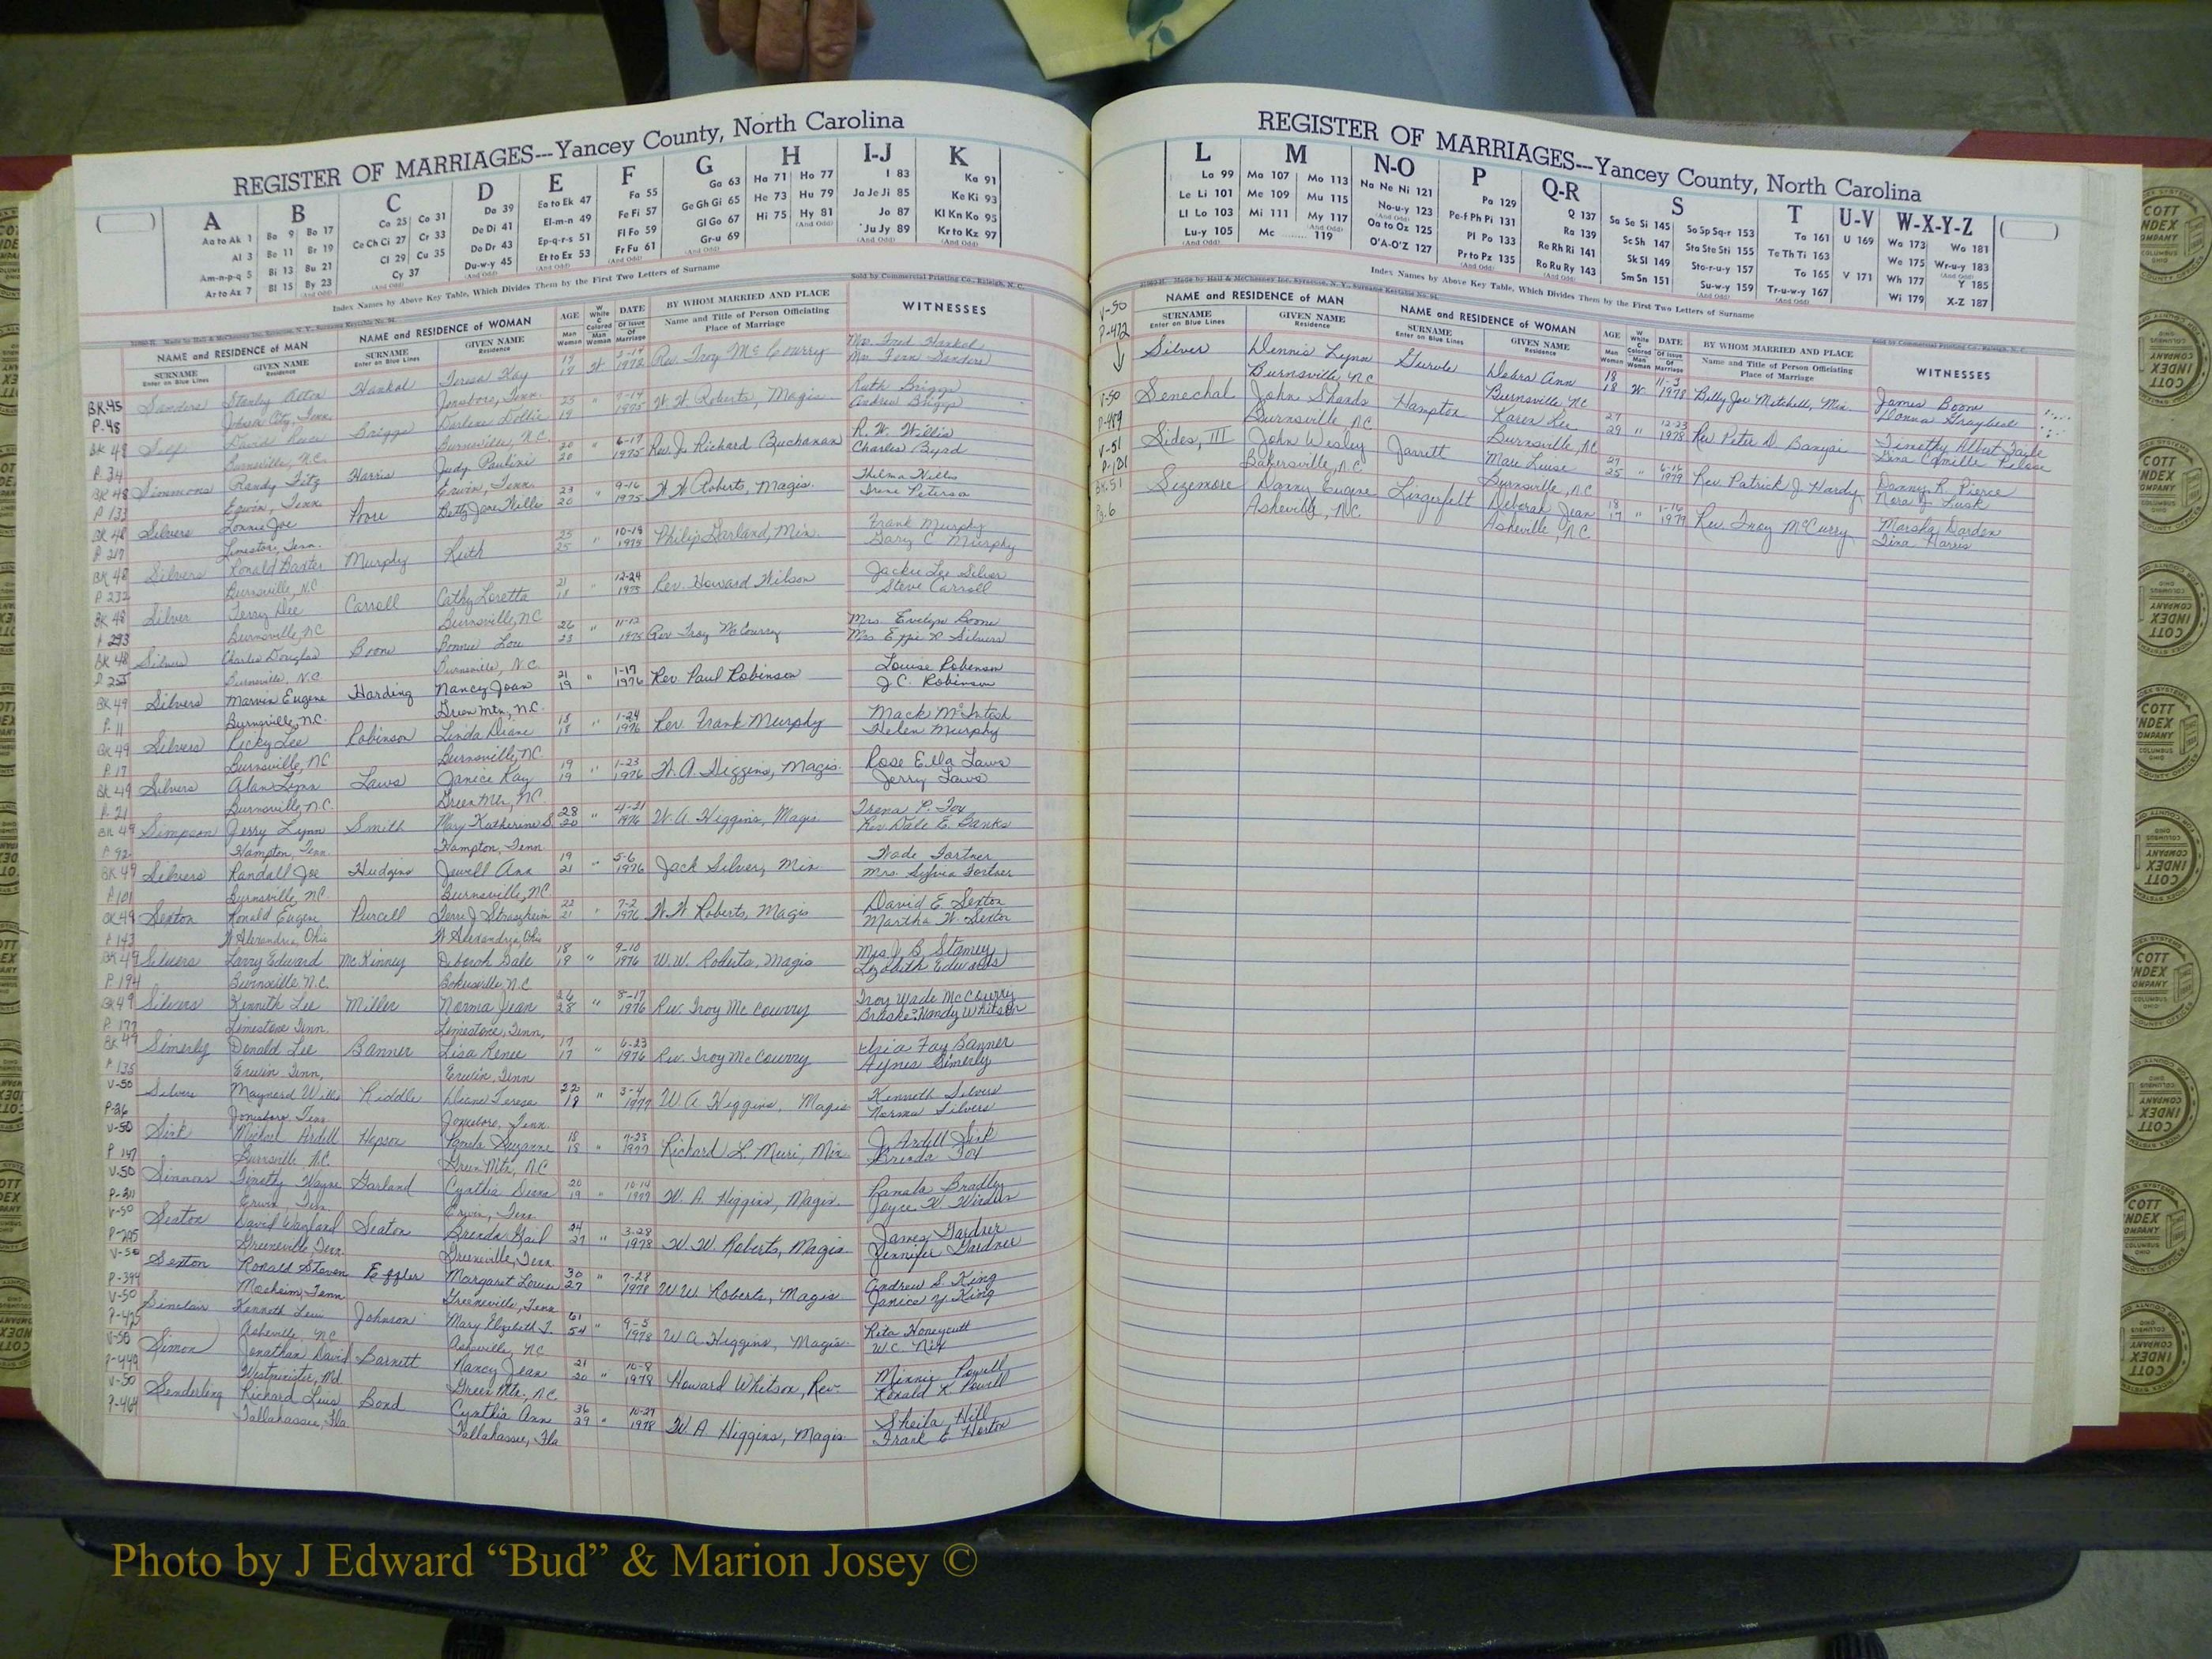 REGISTER OF MARRIAGES---Yancey County, North Carolina
A B C D E F G H I-J K
Aa to Ak 1 Ba 9 Bo 17 Ca 25 Co 31 Da 39 Ea to Ek 47 Fa 55 Ga 63 Ha 71 Ho 77 I 83 Ka 91
Al 3 Be 11 Br 19 Ce Ch Ci 27 Cr 33 De Di 41 El-m-n 49 Fe Fi 57 Ge Gh Gi 65 He 73 Hu 79 Ja Je Ji 85 Ke Ki 93
Am-n-p-q 5 Bi 13 Bu 21 Cl 29 Cu 35 Do Dr 43 Ep-q-r-s 51 Fl Fo 59 Gl Go 67 Hi 75 Hy 81 Jo 87 Kl Kn Ko 95
Ar to Az 7 Bl 15 By 23 Cy 37 Du-w-y 45 Et to Ex 53 Fr Fu 61 Gr-u 69 Ju Jy 89 Kr to Kz 97
Index Names by Above Key Table, Which Divides Them by the First Two Letters of Surname
Sold by Commercial Printing Co., Raleigh, N. C.
NAME and RESIDENCE OF MAN NAME and RESIDENCE OF WOMAN AGE DATE BY WHOM MARRIED AND PLACE WITNESSES
SURNAME GIVEN NAME SURNAME GIVEN NAME Name and Title of Person Officiating
Enter on Blue Lines Residence Enter on Blue Lines Residence Place of Marriage
BK 45 Sanders Stanley Haskal Teresa Kay 17 W 1972 Rev. Troy McCourry Mr. Fred Haskal
P. 48 Johnson City, Tenn. Jonesboro, Tenn. Mr. Fenn Sanders
BK 48 Self David Briggs Darlene Dollie 19 " 1975 W. W. Roberts, Magis. Ruth Briggs
P. 34 Burnsville, N.C. Burnsville, N.C. Andrew Briggs
BK 48 Simmons Randy Fitz Harris Judy Pauline 20 20 " 6-17 1975 Rev. J. Richard Buchanan R. W. Willis
P 133 Erwin, Tenn. Erwin, Tenn. Charles Byrd
BK 48 Silvers Lonnie Joe Poore Betty Jane Willis 23 20 " 9-16 1975 W. W. Roberts, Magis. Thelma Willis
P 217 Limestone, Tenn. Irene Peterson
BK 48 Silvers Ronald Baxter Murphy Ruth 25 25 " 10-18 1975 Philip Garland, Min. Frank Murphy
P 232 Burnsville, N.C. Gary C. Murphy
BK 48 Silver Terry Dee Carroll Cathy Loretta 21 18 " 12-24 1975 Rev. Howard Wilson Jackie Lee Silver
P 293 Burnsville, NC Burnsville, NC Steve Carroll
BK 48 Silvers Charles Douglas Boone Bonnie Lou 26 23 " 11-12 1975 Rev Troy McCourry Mrs. Evelyn Boone
Burnsville, N.C. Burnsville, N.C. Mrs Effie R Silvers
BK 49 Silvers Marvin Eugene Harding Nancy Joan 21 19 " 1-17 1976 Rev. Paul Robinson Louise Robinson
P. 11 Burnsville, N.C. Green Mtn, N.C. J.C. Robinson
BK 49 Silvers Ricky Lee Robinson Linda Diane 18 18 " 1-24 1976 Rev. Frank Murphy Mack McIntosh
P. 17 Burnsville, NC Burnsville, NC Helen Murphy
BK 49 Silvers Alan Lynn Laws Janice Kay 19 19 " 1-23 1976 W. A. Higgins, Magis. Rose Ella Laws
P. 21 Burnsville, N.C. Green Mtn, NC. Jerry Laws
BK 49 Simpson Jerry Lynn Smith Mary Katherine S. 28 20 " 4-21 1976 W. A. Higgins, Magis Trena P. Fox
P 92 Hampton, Tenn. Hampton, Tenn. Rev. Dale E. Banks
BK 49 Silvers Randall Joe Hudgins Jewell Ann 19 21 " 5-6 1976 Jack Silver, Min Wade Fortner
P 101 Burnsville, NC. Burnsville, NC. Mrs. Sylvia Fortner
BK 49 Sexton Ronald Eugene Purcell Terri J Straszheim 22 21 " 7-2 1976 W. W. Roberts, Magis David E. Sexton
P 143 W Alexandria, Ohio W Alexandria, Ohio Martha W. Sexton
BK 49 Silvers Larry Edward McKinney Deborah Gale 18 19 " 9-10 1976 W.W. Roberts, Magis Mrs. J. B. Stamey
P. 194 Burnsville, N.C. Bakersville, N.C Edwards
BK 49 Silvers Kenneth Lee Miller Norma Jean 26 28 " 8-17 1976 Rev. Troy McCourry Troy Wade McCourry
P. 177 Limestone Tenn. Limestone, Tenn. Whitson
BK 49 Simerly Donald Lee Banner Lisa Renee 17 17 " 6-23 1976 Rev. Troy McCourry Fay Banner
P 135 Erwin Tenn, Erwin, Tenn Agnes Simerly
V-50 Silvers Maynard Willi Riddle Diane Teresa 22 18 " 3-4 1977 W A Higgins, Magis Kenneth Silvers
P-26 Jonesboro, Tenn Jonesboro, Tenn. Norma Silvers
V-50 Sirk Michael Ardell Hopson Pamela Suzanne 18 18 " 7-23 1977 Richard L. Muri, Min. J. Ardell Sirk
P 147 Burnsville, N.C. Green Mtn, N.C Brenda Fox
V-50 Simmons Timothy Wayne Garland Cynthia 20 19 " 10-14 1977 W. A. Higgins, Magis. Pamela Bradley
P-211 Erwin Tenn. Erwin, Tenn Joyce W.
V-50 Seaton David Wayland Seaton Brenda Gail 24 27 " 3-28 1978 W. W. Roberts, Magis. James Gardner
P-295 Greeneville, Tenn Greeneville, Tenn Jennifer Gardner
V-50 Sexton Ronald Steven Effler Margaret Louise 30 27 " 7-28 1978 W W Roberts, Magis Andrew S. King
P-394 Mosheim, Tenn Greeneville, Tenn Janice Y. King
V-50 Sinclair Kenneth Johnson Mary Elizabeth T. 61 54 " 9-5 1978 W A Higgins, Magis. Rita Honeycutt
P-425 Asheville, NC Asheville, NC W.C. Nix
V-50 Simon Jonathan David Barnett Nancy Jean 21 20 " 10-8 1978 Howard Whitson, Rev. Minnie Powell
P-449 Westminster, Md. Green Mtn. N.C. Ronald K Powell
V-50 Senderling Richard Bond Cynthia Ann 36 29 " 10-27 1978 W. A Higgins, Magis. Sheila Hill
P-464 Tallahassee, Fla Tallahassee, Fla Frank E Horton
REGISTER OF MARRIAGES---Yancey County, North Carolina
L M N-O P Q-R S T U-V W-X-Y-Z
La 99 Ma 107 Mo 113 Na Ne Ni 121 Pa 129 Q 137 Sa Se Si 145 So Sp Sq-r 153 Ta 161 U 169 Wa 173 Wo 181
Le Li 101 Me 109 Mu 115 No-u-y 123 Pe-f Ph Pi 131 Ra 139 Sc Sh 147 Sta Ste Sti 155 Te Th Ti 163 We 175 Wr-u-y 183
Ll Lo 103 Mi 111 My 117 Oa to Oz 125 Pl Po 133 Re Rh Ri 141 Sk Sl 149 Sto-r-u-y 157 To 165 V 171 Wh 177 Y 185
Lu-y 105 Mc 119 O'A-O'Z 127 Pr to Pz 135 Ro Ru Ry 143 Sm Sn 151 Su-w-y 159 Tr-u-w-y 167 Wi 179 X-Z 187
Index Names by Above Key Table, Which Divides Them by the First Two Letters of Surname
NAME and RESIDENCE OF MAN NAME and RESIDENCE OF WOMAN AGE DATE BY WHOM MARRIED AND PLACE WITNESSES
SURNAME GIVEN NAME SURNAME GIVEN NAME Name and Title of Person Officiating
Enter on Blue Lines Residence Enter on Blue Lines Residence Place of Marriage
V-50 Silver Dennis Lynn Debra Ann 18 18 W 11-3 1978 Billy Joe Mitchell, Min. James Boone
P-472 Burnsville, NC Burnsville, NC Donna Graybeal
V-50 Senechal John Hampton Karen Lee 27 29 " 12-23 1978 Rev Peter D. Banyai Timothy Albert
P-489 Burnsville, NC Burnsville, NC Gina Camille
V-51 Sides, III John Wesley Jarrett Marc Luise 27 25 " 6-16 1979 Rev. Patrick J Hardy Danny R. Pierce
P-121 Bakersville, N.C Burnsville, N.C Nora J. Lusk
BK-51 Sizemore Danny Eugene Lingerfelt Deborah Jean 18 17 " 1-16 1979 Rev. Troy McCurry Marsha Darden
Pg. 6 Asheville, NC. Asheville, N.C Tina Harris
COTT INDEX COMPANY COLUMBUS OHIO
Photo by J Edward “Bud” & Marion Josey ©